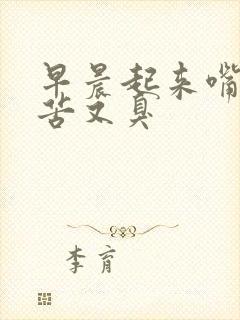 早晨起来嘴
苦又臭
李育